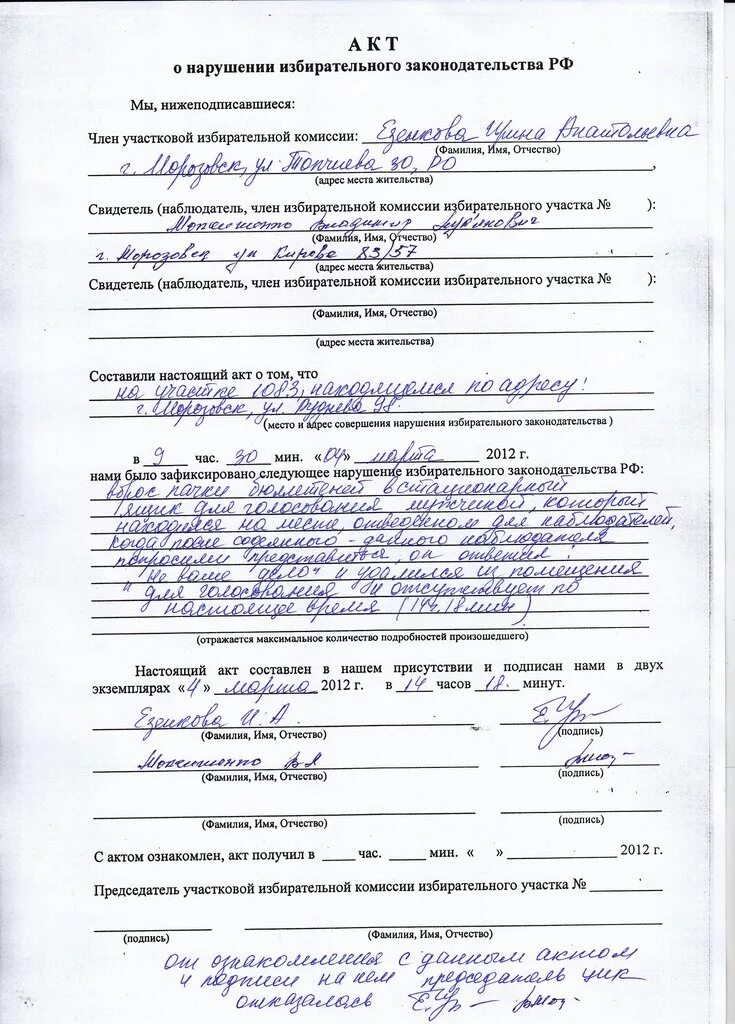 АКТ
о нарушении избирательного законодательства РФ
Мы, нижеподписавшиеся:
Член участковой избирательной комиссии: Езенкова Ирина Анатольевна
(Фамилия, Имя, Отчество)
г. Морозовск, ул Топчиева 30, РО ,
(адрес места жительства)
Свидетель (наблюдатель, член избирательной комиссии избирательного участка № ):
Владимир
(Фамилия, Имя, Отчество)
г. Морозовск ул Кирова 83/57
(адрес места жительства)
Свидетель (наблюдатель, член избирательной комиссии избирательного участка № ):
(Фамилия, Имя, Отчество)
(адрес места жительства)
Составили настоящий акт о том, что
на участке 1083, находящемся по адресу:
г. Морозовск, ул. Руднева 98.
(место и адрес совершения нарушения избирательного законодательства )
в 9 час. 30 мин. «04» марта 2012 г.
нами было зафиксировано следующее нарушение избирательного законодательства РФ:
вброс пачки бюллетеней в стационарный
ящик для голосования мужчиной, который
находился на месте, отведенном для наблюдателей,
когда после содеянного - данного наблюдателя
попросили представится, он ответил:
"Не ваше дело" и удалился из помещения
для голосования и отсутствует по
настоящее время (14ч.18мин)
(отражается максимальное количество подробностей произошедшего)
Настоящий акт составлен в нашем присутствии и подписан нами в двух
экземплярах «4» марта 2012 г. в 14 часов 18. минут.
Езенкова И. А.
(Фамилия, Имя, Отчество) (подпись)
(Фамилия, Имя, Отчество) (подпись)
(Фамилия, Имя, Отчество) (подпись)
С актом ознакомлен, акт получил в ____ час. ____ мин. « » ____ 2012 г.
Председатель участковой избирательной комиссии избирательного участка № ____
(подпись) (Фамилия, Имя, Отчество)
от ознакомления с данным актом
и подписи на нем председатель
отказалась